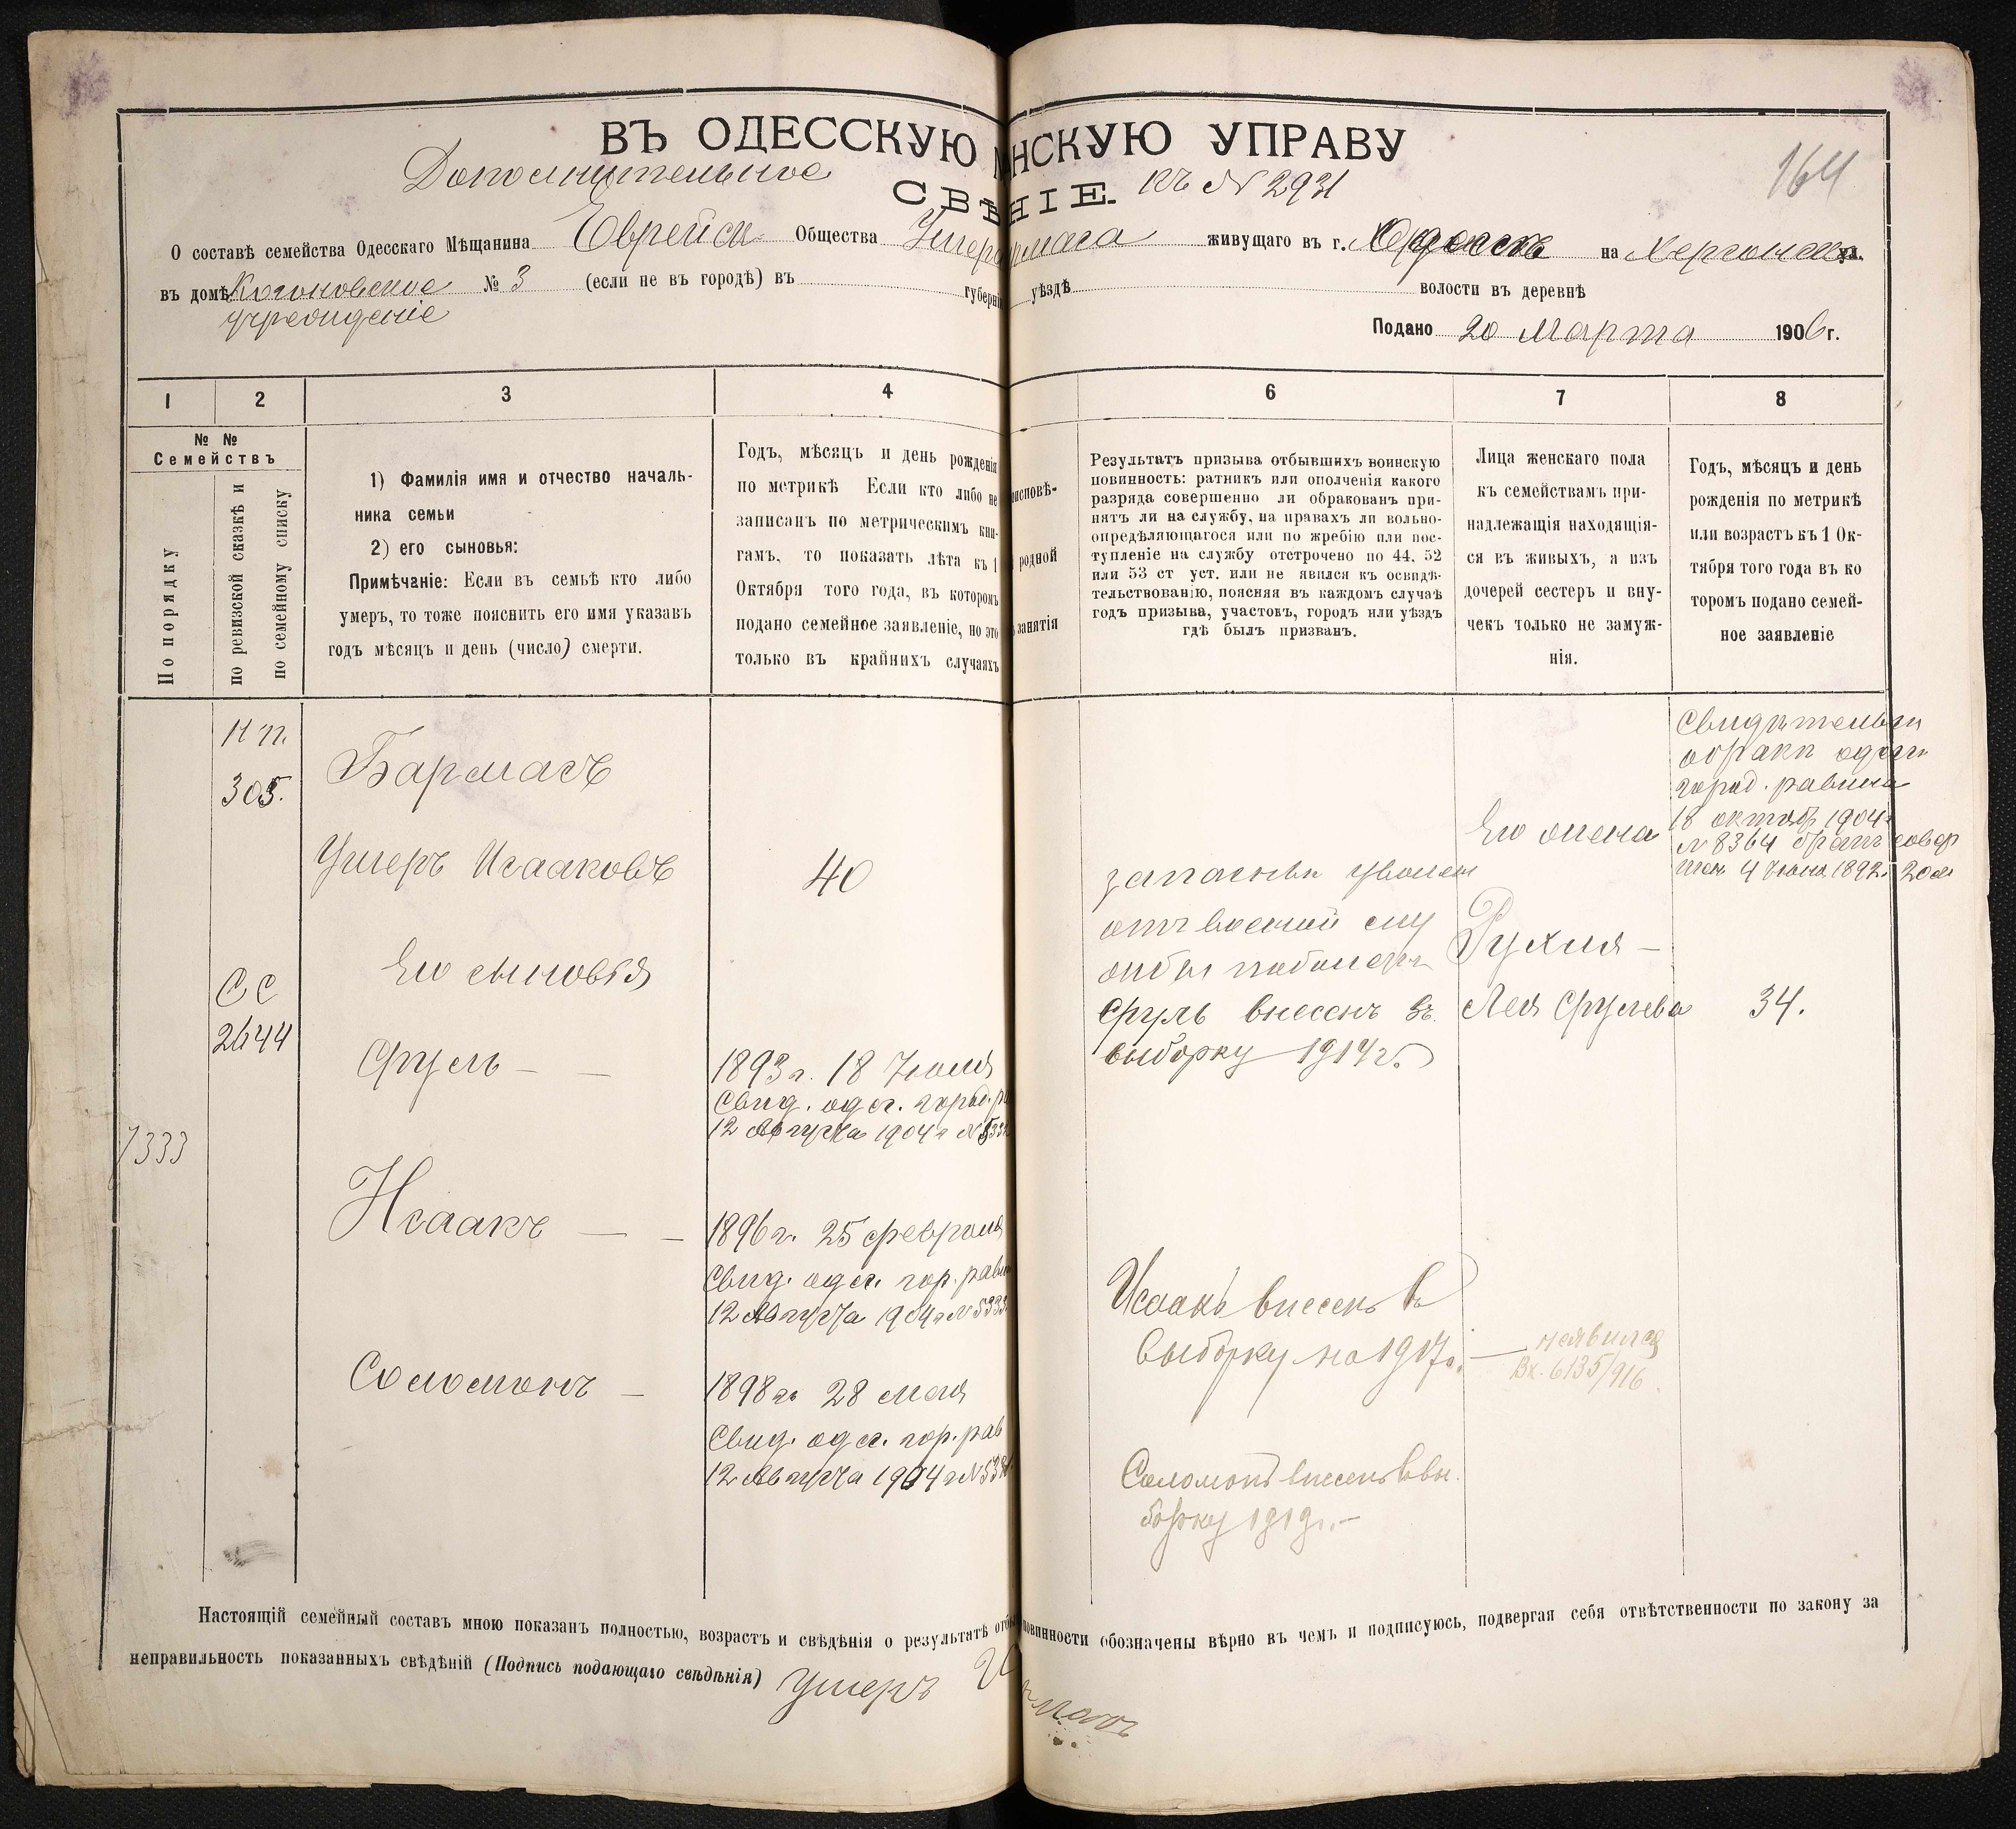 ВЪ ОДЕССКУЮ НСКУЮ УПРАВУ
Дополнительное
СВѢНІЕ. къ № 2931
164
О составѣ семейства Одесскаго Мѣщанина Еврейск Общества Ушера рмаса живущаго въ г. на Херсонск ул.
въ домѣ Когоновское № 3 (если не въ городѣ) въ губерніи уѣздѣ волости въ деревнѣ
учреждение
Подано 20 Марта 1906 г.
1 2 3 4 6 7 8
№ №
Семействъ
По порядку
по ревизской сказкѣ и
по семейному списку
1) Фамилія имя и отчество началь-
ника семьи
2) его сыновья:
Примѣчаніе: Если въ семьѣ кто либо
умеръ, то тоже пояснить его имя указавъ
годъ мѣсяцъ и день (число) смерти.
Годъ, мѣсяцъ и день рожденія
по метрикѣ Если кто либо не
записанъ по метрическимъ кни-
гамъ, то показать лѣта къ 1
Октября того года, въ которомъ
подано семейное заявленіе, но это
только въ крайнихъ случаяхъ
оисповѣ-
родной
занятія
Результатъ призыва отбывшихъ воинскую
повинность: ратникъ или ополченія какого
разряда совершенно ли обракованъ при-
нятъ ли на службу, на правахъ ли вольно-
опредѣляющагося или по жребію или пос-
тупленіе на службу отстрочено по 44, 52
или 53 ст уст. или не явился къ освидѣ-
тельствованію, поясняя въ каждомъ случаѣ
годъ призыва, участовъ, городъ или уѣздъ
гдѣ былъ призванъ.
Лица женскаго пола
къ семействамъ при-
надлежащія находящія-
ся въ живыхъ, а изъ
дочерей сестеръ и вну-
чекъ только не замуж-
нія.
Годъ, мѣсяцъ и день
рожденія по метрикѣ
или возрастъ къ 1 Ок-
тября того года въ ко
торомъ подано семей-
ное заявленіе
Н П.
305.
Бармасъ
Ушеръ Исааковъ
40
запасный уволен
отъ военной слу
жбы
Его жена
Рухля —
Лея Срулева
34.
Свидѣтельст
о бракѣ одесск
город. равина
18 октяб 1904 г
№ 8364 бракъ совер
шен 4 Іюня 1892 г. 20
Его сыновья
СС
2644
Сруль — —
1893 г. 18 Іюля
Свид. одес. город. ра
12 Августа 1904 г №
Сруль внесенъ въ
выборку 1914 г.
7333
Исаакъ — —
1896 г. 25 февраля
Свид. одес. гор. равин
12 Августа 1904 г № 5333
Исаакъ внесенъ въ
выборку на 1917 г. — неявился
Вх. 6135/916
Соломонъ —
1898 г. 28 мая
Свид. одес. гор. рав
12 Августа 1904 г №
Соломонъ внесенъ въ вы-
борку 1919 г. —
Настоящій семейный составъ мною показанъ полностью, возрастъ и свѣдѣнія о результатѣ отбы повинности обозначены вѣрно въ чемъ и подписуюсь, подвергая себя отвѣтственности по закону за
неправильность показанныхъ свѣдѣній (Подпись подающаго свѣдѣнія) Ушеръ И
рмасъ